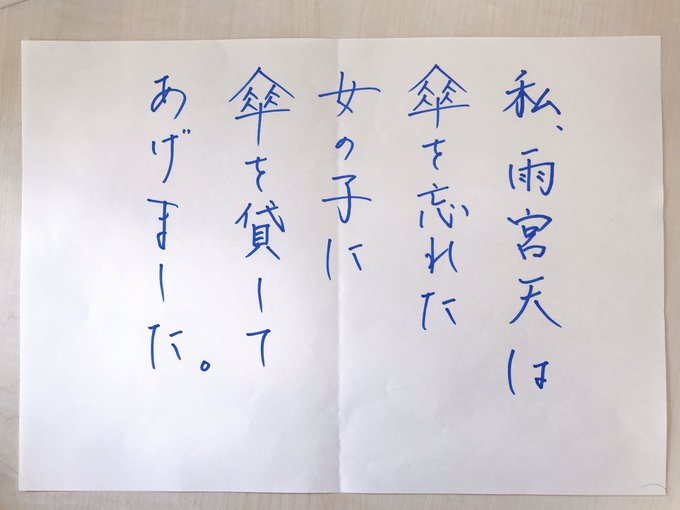 私、雨宮天は
傘を忘れた
女の子に
傘を貸して
あげました。